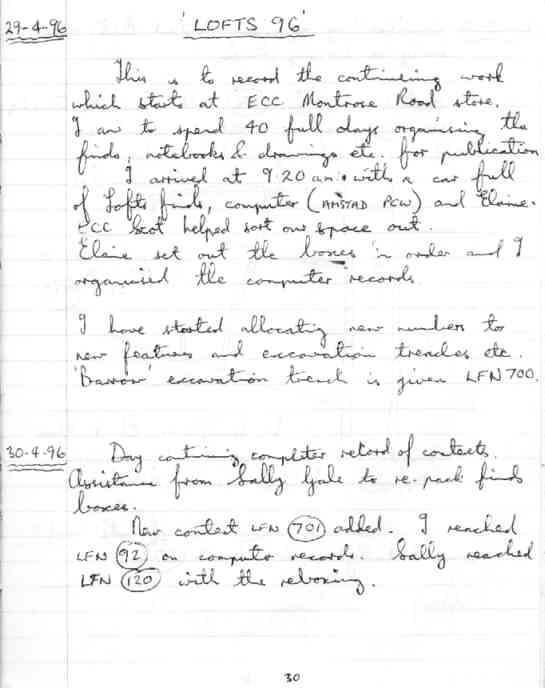 29-4-96 'LOFTS 96'
This is to record the continuing work
which starts at ECC Montrose Road store.
I am to spend 40 full days organising the
finds, notebooks & drawings etc. for publication
I arrived at 9.20 am with a car full
of Lofts finds, computer (AMSTAD PCW) and Elaine.
ECC Scot helped sort our space out.
Elaine set out the boxes in order and I
organised the computer records.
I have started allocating new numbers to
new features and excavation trenches etc.
'Barrow' excavation trench is given LFN 700.
30-4-96 Day continuing computer record of contexts.
Assistance from Sally Gale to re-pack finds
boxes.
New context LFN 701 added. I reached
LFN 92 on computer records. Sally reached
LFN 120 with the reboxing.
30